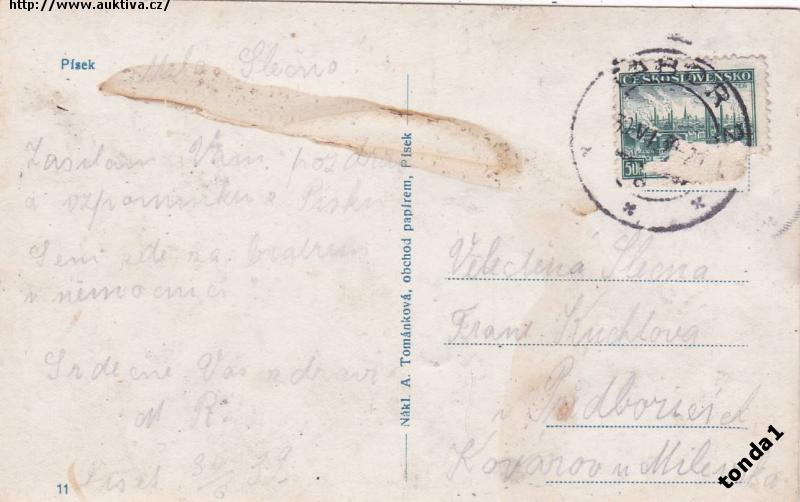 http://www.auktiva.cz/
Písek
11
Milá Slečno
Zasílám Vám pozdrav
a vzpomínku z Písku
Jsem zde za bratrem
v nemocnici
Srdečně Vás zdraví
R.
Písek 30 39
Nákl. A. Tománková, obchod papírem, Písek
ČESKOSLOVENSKO
50
Slečna
Kuchtová
v
Kovářov u Milevska
tonda1